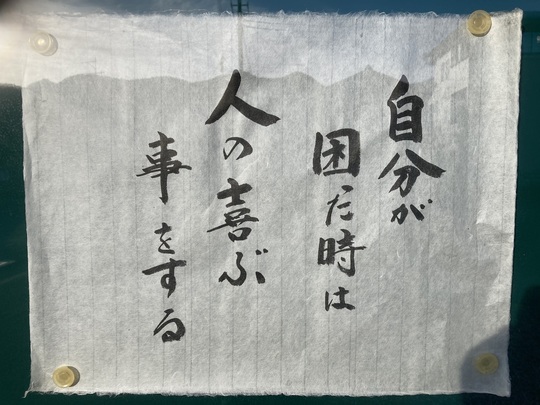 自分が
困た時は
人の喜ぶ
事をする